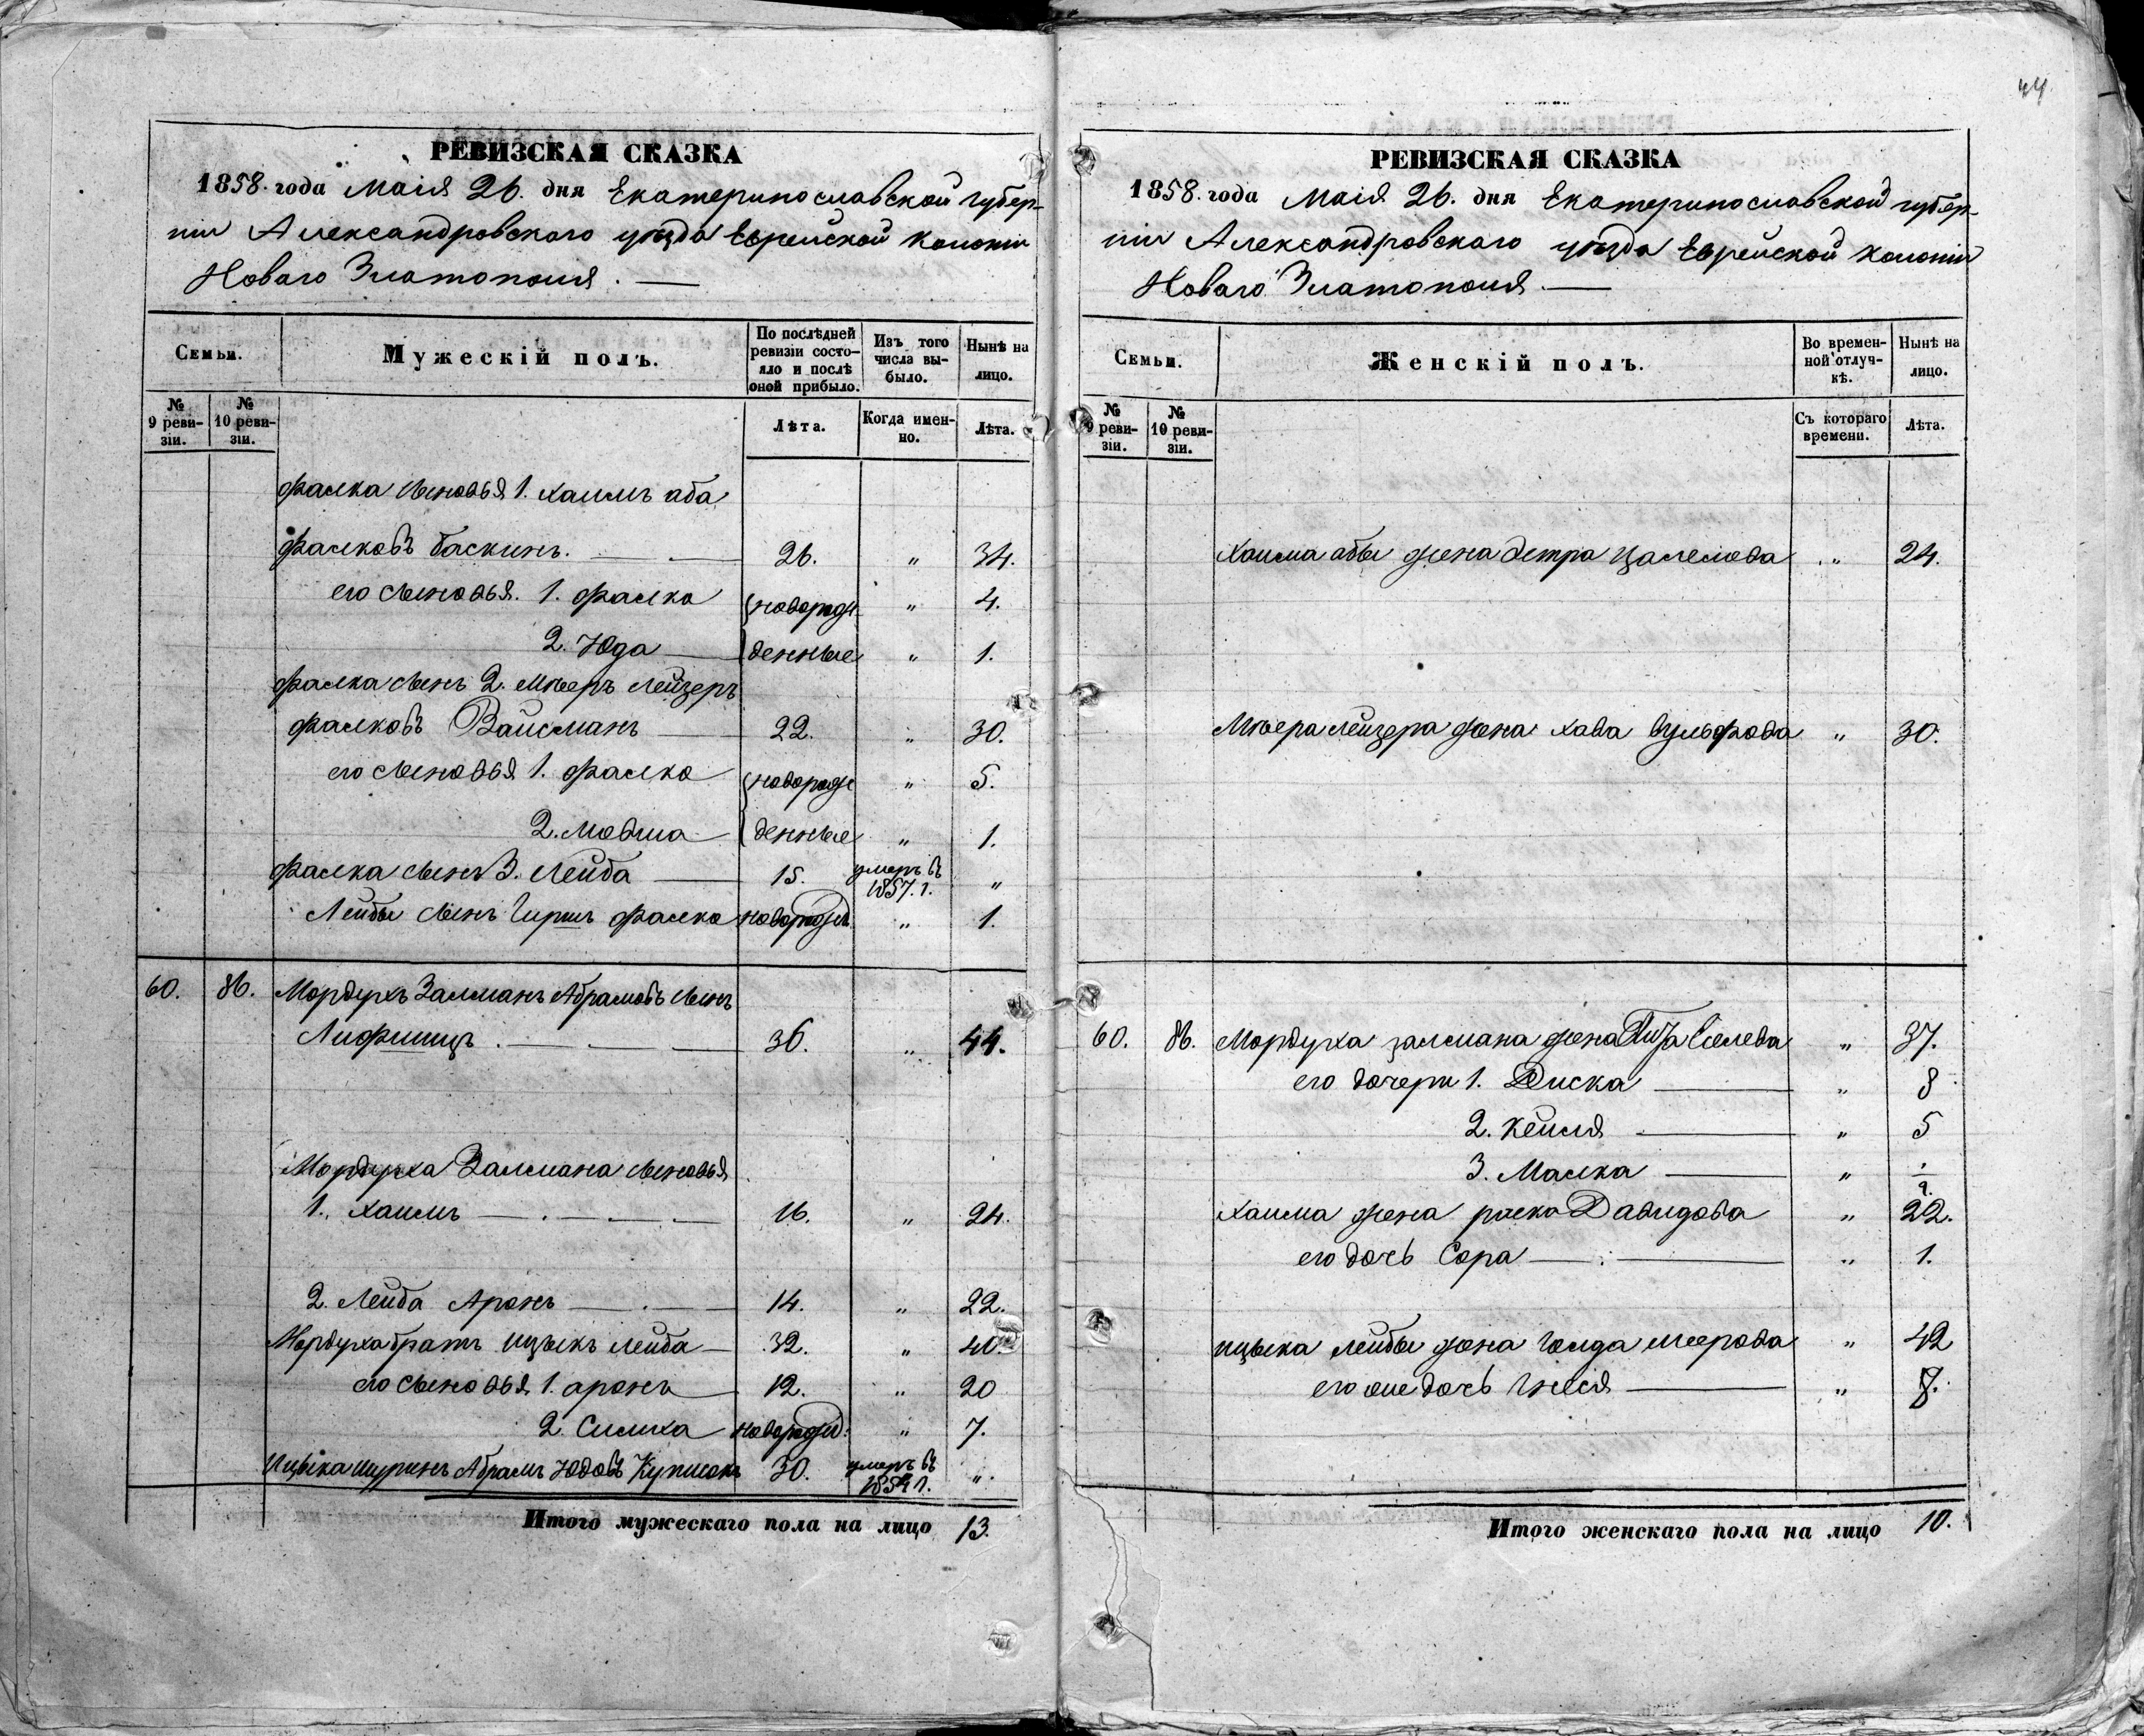 44.
РЕВИЗСКАЯ СКАЗКА
1858. года Маія 26. дня Екатеринославской губер-
ніи Александровскаго уѣзда Еврейской колоніи
Новаго Златополя.
Семьи.
Мужескій полъ.
По послѣдней ревизіи состо-яло и послѣ оной прибыло.
Изъ того числа вы-было.
Нынѣ на лицо.
№ 9 реви-зіи.
№ 10 реви-зіи.
Лѣта.
Когда имен-но.
Лѣта.
Фалка сыновья 1. Хаимъ аба
Фалковъ Баскинъ. 26. " 34.
его сыновья. 1. Фалко новорож- " 4.
2. Юда денные " 1.
Фалка сынъ 2. Мѣеръ Лейзеръ
Фалковъ Вайсманъ 22. " 30.
его сыновья 1. Фалко новорож " 5.
2. Мовша денные " 1.
Фалка сынъ 3. Лейба 15. умеръ въ 1857. г. "
Лейбы сынъ Гиршъ Фалко новорожд. " 1.
60. 86. Мордухъ Залманъ Абрамовъ сынъ
Лифшицъ. 36. " 44.
Мордуха Залмана сыновья
1. Хаимъ 16. " 24.
2. Лейба Аронъ 14. " 22.
Мордуха братъ Ицыкъ Лейба 32. " 40.
его сыновья 1. Аронъ 12. " 20
2. Симха новорожд: " 7.
Ицыка шуринъ Абрамъ Юдовъ 30. умеръ въ 1854 г. "
Итого мужескаго пола на лицо 13.
РЕВИЗСКАЯ СКАЗКА
1858. года Маія 26. дня Екатеринославской губер-
ніи Александровскаго уѣзда Еврейской колоніи
Новаго Златополя.
Семьи.
Женскій полъ.
Во времен-ной отлуч-кѣ.
Нынѣ на лицо.
№ 9 реви-зіи.
№ 10 реви-зіи.
Съ котораго времени.
Лѣта.
Хаима абы жена Цалелова " 24.
Мѣера Лейзера жена Хава Вульфова " 30.
60. 86. Мордуха Залмана жена " 37.
его дочери 1. Диска " 8
2. Кейля " 5
3. Малка "
Хаима жена Давидова " 22.
его дочь Сора " 1.
Ицыка Лейбы жена Голда Меерова " 42
его же дочь "
Итого женскаго пола на лицо 10.